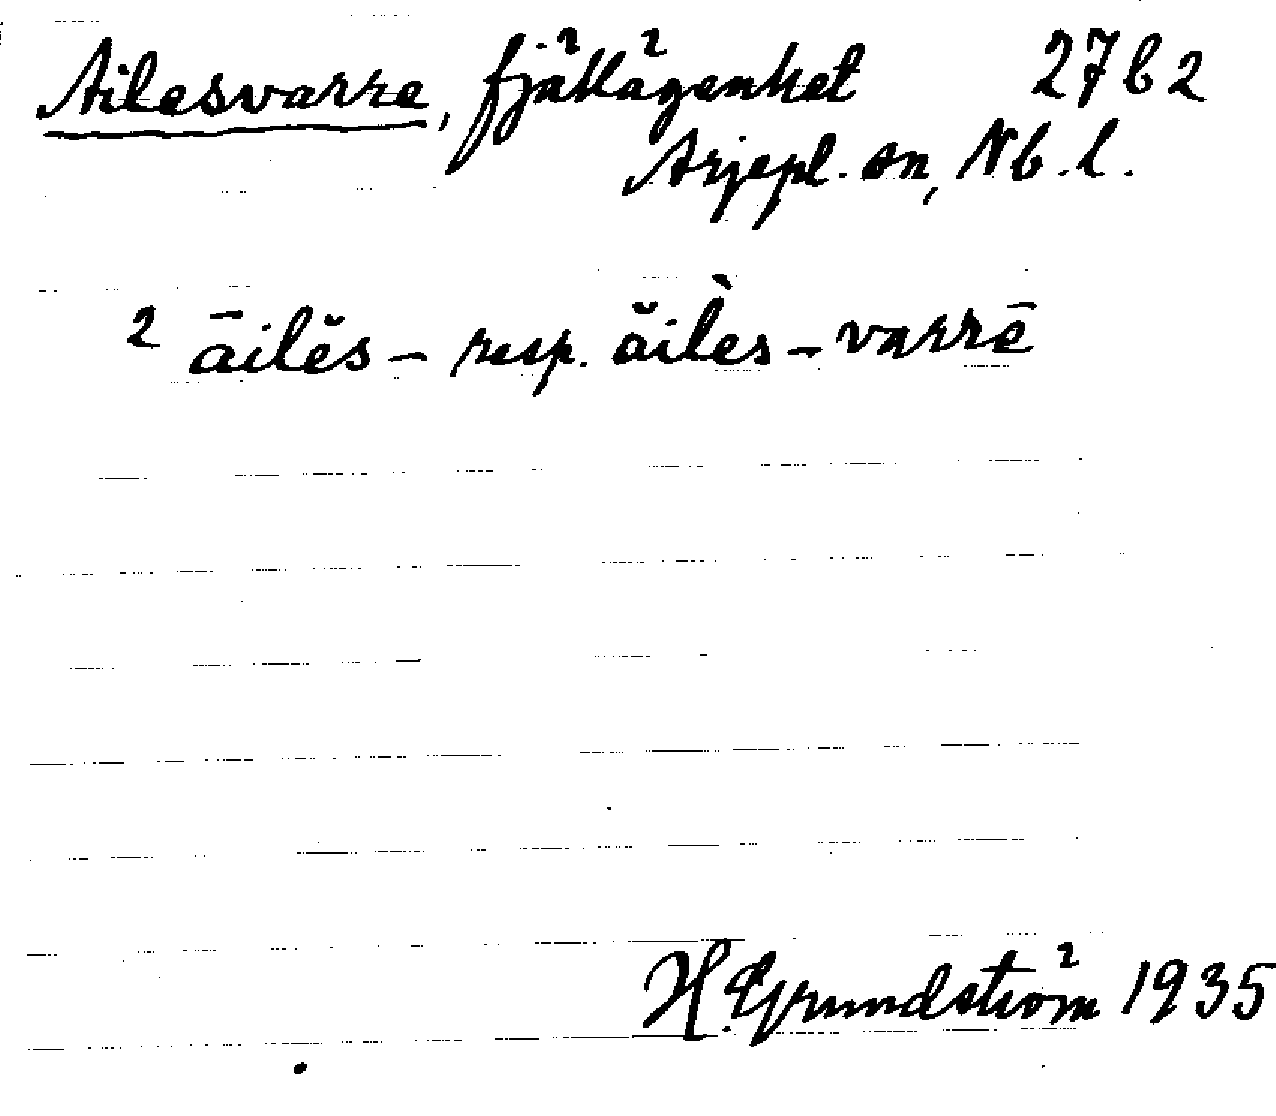 Ailesvarre, fjällägenhet 27b2
Arjepl. sn, Nb. l.
2 āilĕs- resp. ăilès-varrē
H. Grundström 1935